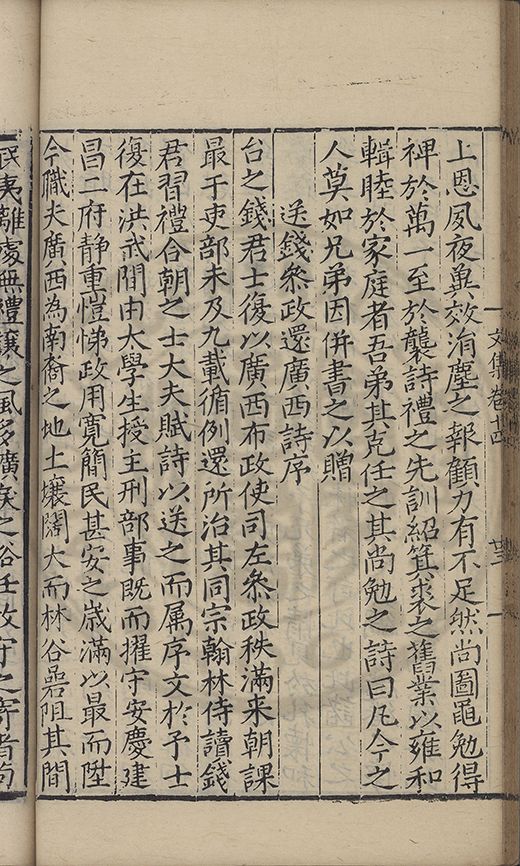 文集卷廿四
上恩夙夜冀效涓塵之報顧力有不足然尚圖黽勉得
裨於萬一至於襲詩禮之先訓紹箕裘之舊業以雍和
輯睦於家庭者吾弟其克任之其尚勉之詩曰凡今之
人莫如兄弟因併書之以贈
送錢叅政還廣西詩序
台之錢君士復以廣西布政使司左叅政秩滿来朝課
最于吏部未及九載循例還所治其同宗翰林侍讀錢
君習禮合朝之士大夫賦詩以送之而属序文於予士
復在洪武間由大學生授主刑部事既而擢守安慶建
昌二府静重愷悌政用寬簡民甚安之嵗滿以最而陞
今職夫廣西為南裔之地土壤闊大而林谷礐阻其間
民夷雜處無禮讓之風多獷戾之俗任牧守之寄者苟